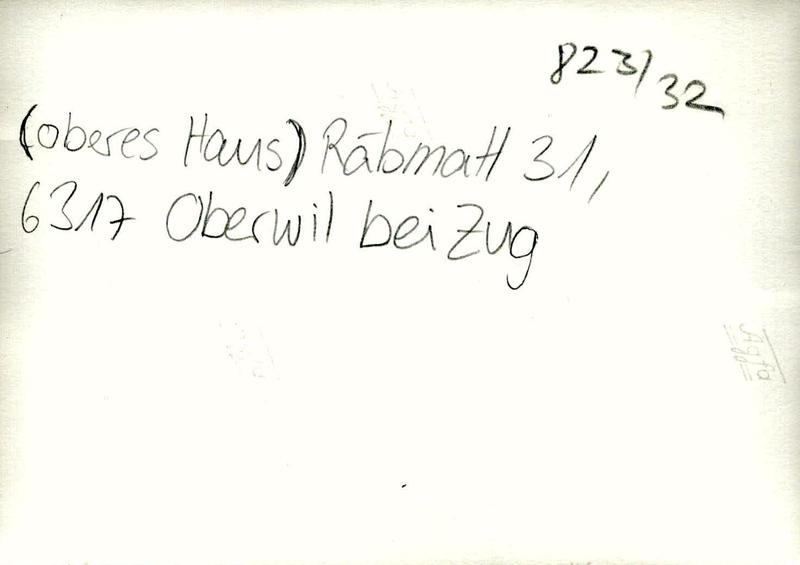 823/32
(oberes Haus) Räbmatt 31,
6317 Oberwil bei Zug
Agfa